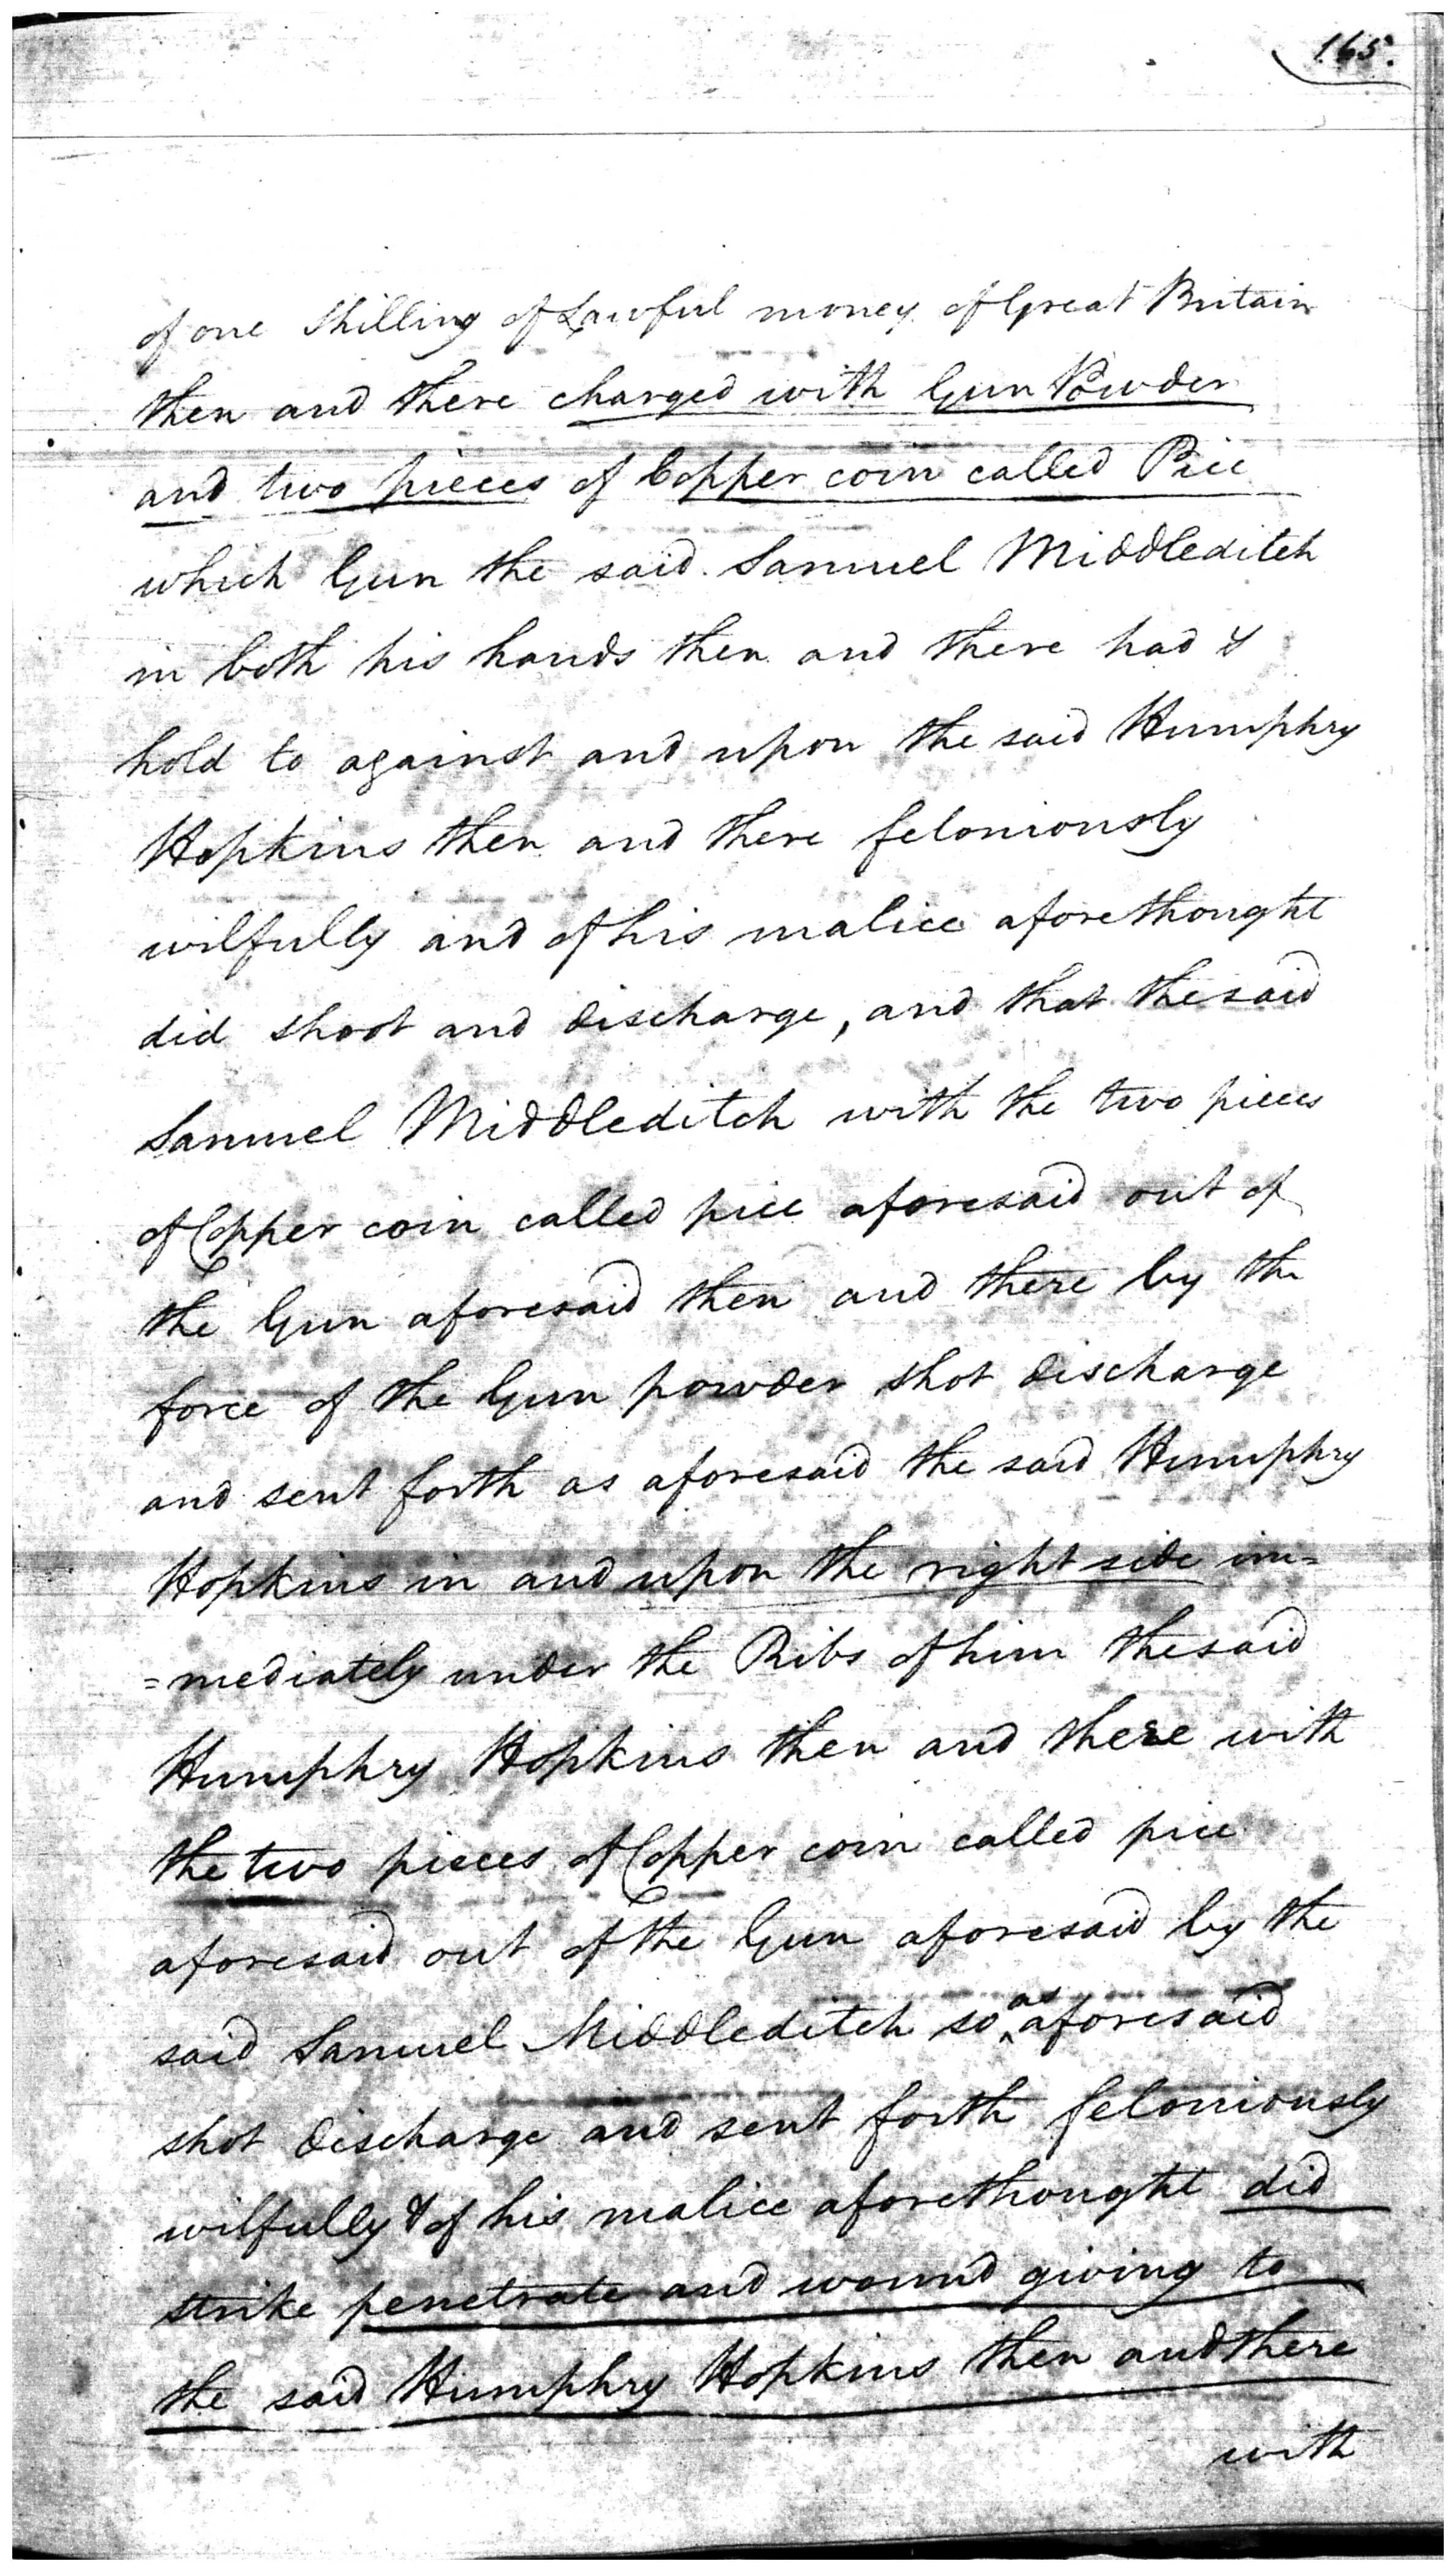 165.
of one Shilling of Lawful money of Great Britain
then and there charged with Gun Powder
and two pieces of Copper coin called Pice
which Gun the said Samuel Middleditch
in both his hands then and there had &
hold to against and upon the said Humphry
Hopkins then and there feloniously
wilfully and of his malice aforethought
did shoot and discharge, and that the said
Samuel Middleditch with the two pieces
of Copper coin called pice aforesaid out of
the Gun aforesaid then and there by the
force of the Gun powder shot discharge
and sent forth as aforesaid the said Humphry
Hopkins in and upon the right side im=
=mediately under the Ribs of him the said
Humphry Hopkins then and there with
the two pieces of Copper coin called pice
aforesaid out of the Gun aforesaid by the
said Samuel Middleditch so as aforesaid
shot discharge and sent forth feloniously
wilfully & of his malice aforethought did
strike penetrate and wound giving to
the said Humphry Hopkins then and there
with